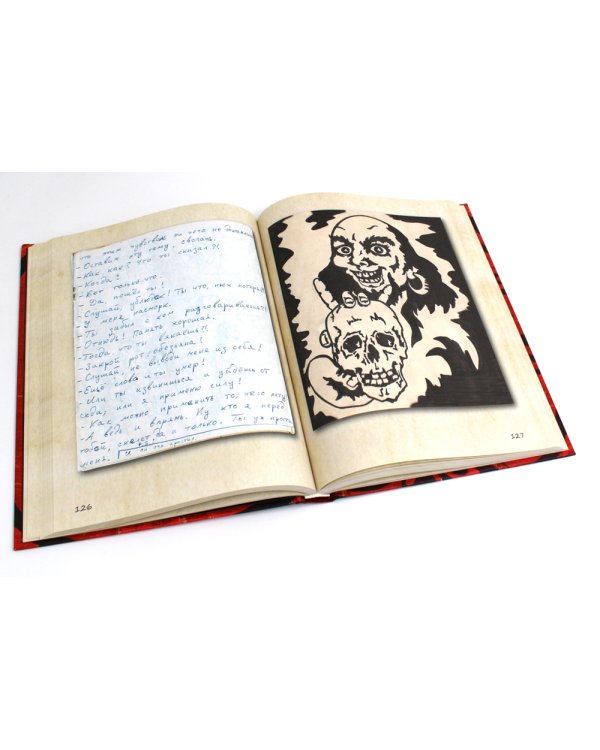 что этим чувством ты чего не
- Оставим эту тему, сволочь.
- Как, как? Что ты сказал?!
- Когда?
- Вот только что.
- Да, пошёл ты!
- Слушай, ублюдок! Ты что, нюх потерял
У меня насморк.
- Ты забыл с кем разговариваешь?!
- Отнюдь! Память хорошая.
Тогда что ты вякаешь?!
- Закрой рот, обезьяна!
- Слушай, не выводи меня из себя!
- Ещё слово и ты умер!
- Или ты извинишься и уйдёшь от
сюда, или я применю силу!
- Как можно применить то, чего нету
- А ведь и впрямь. Ну кто я перед
тобой, скелет, да и только. Ты уж прости
меня.
126
127